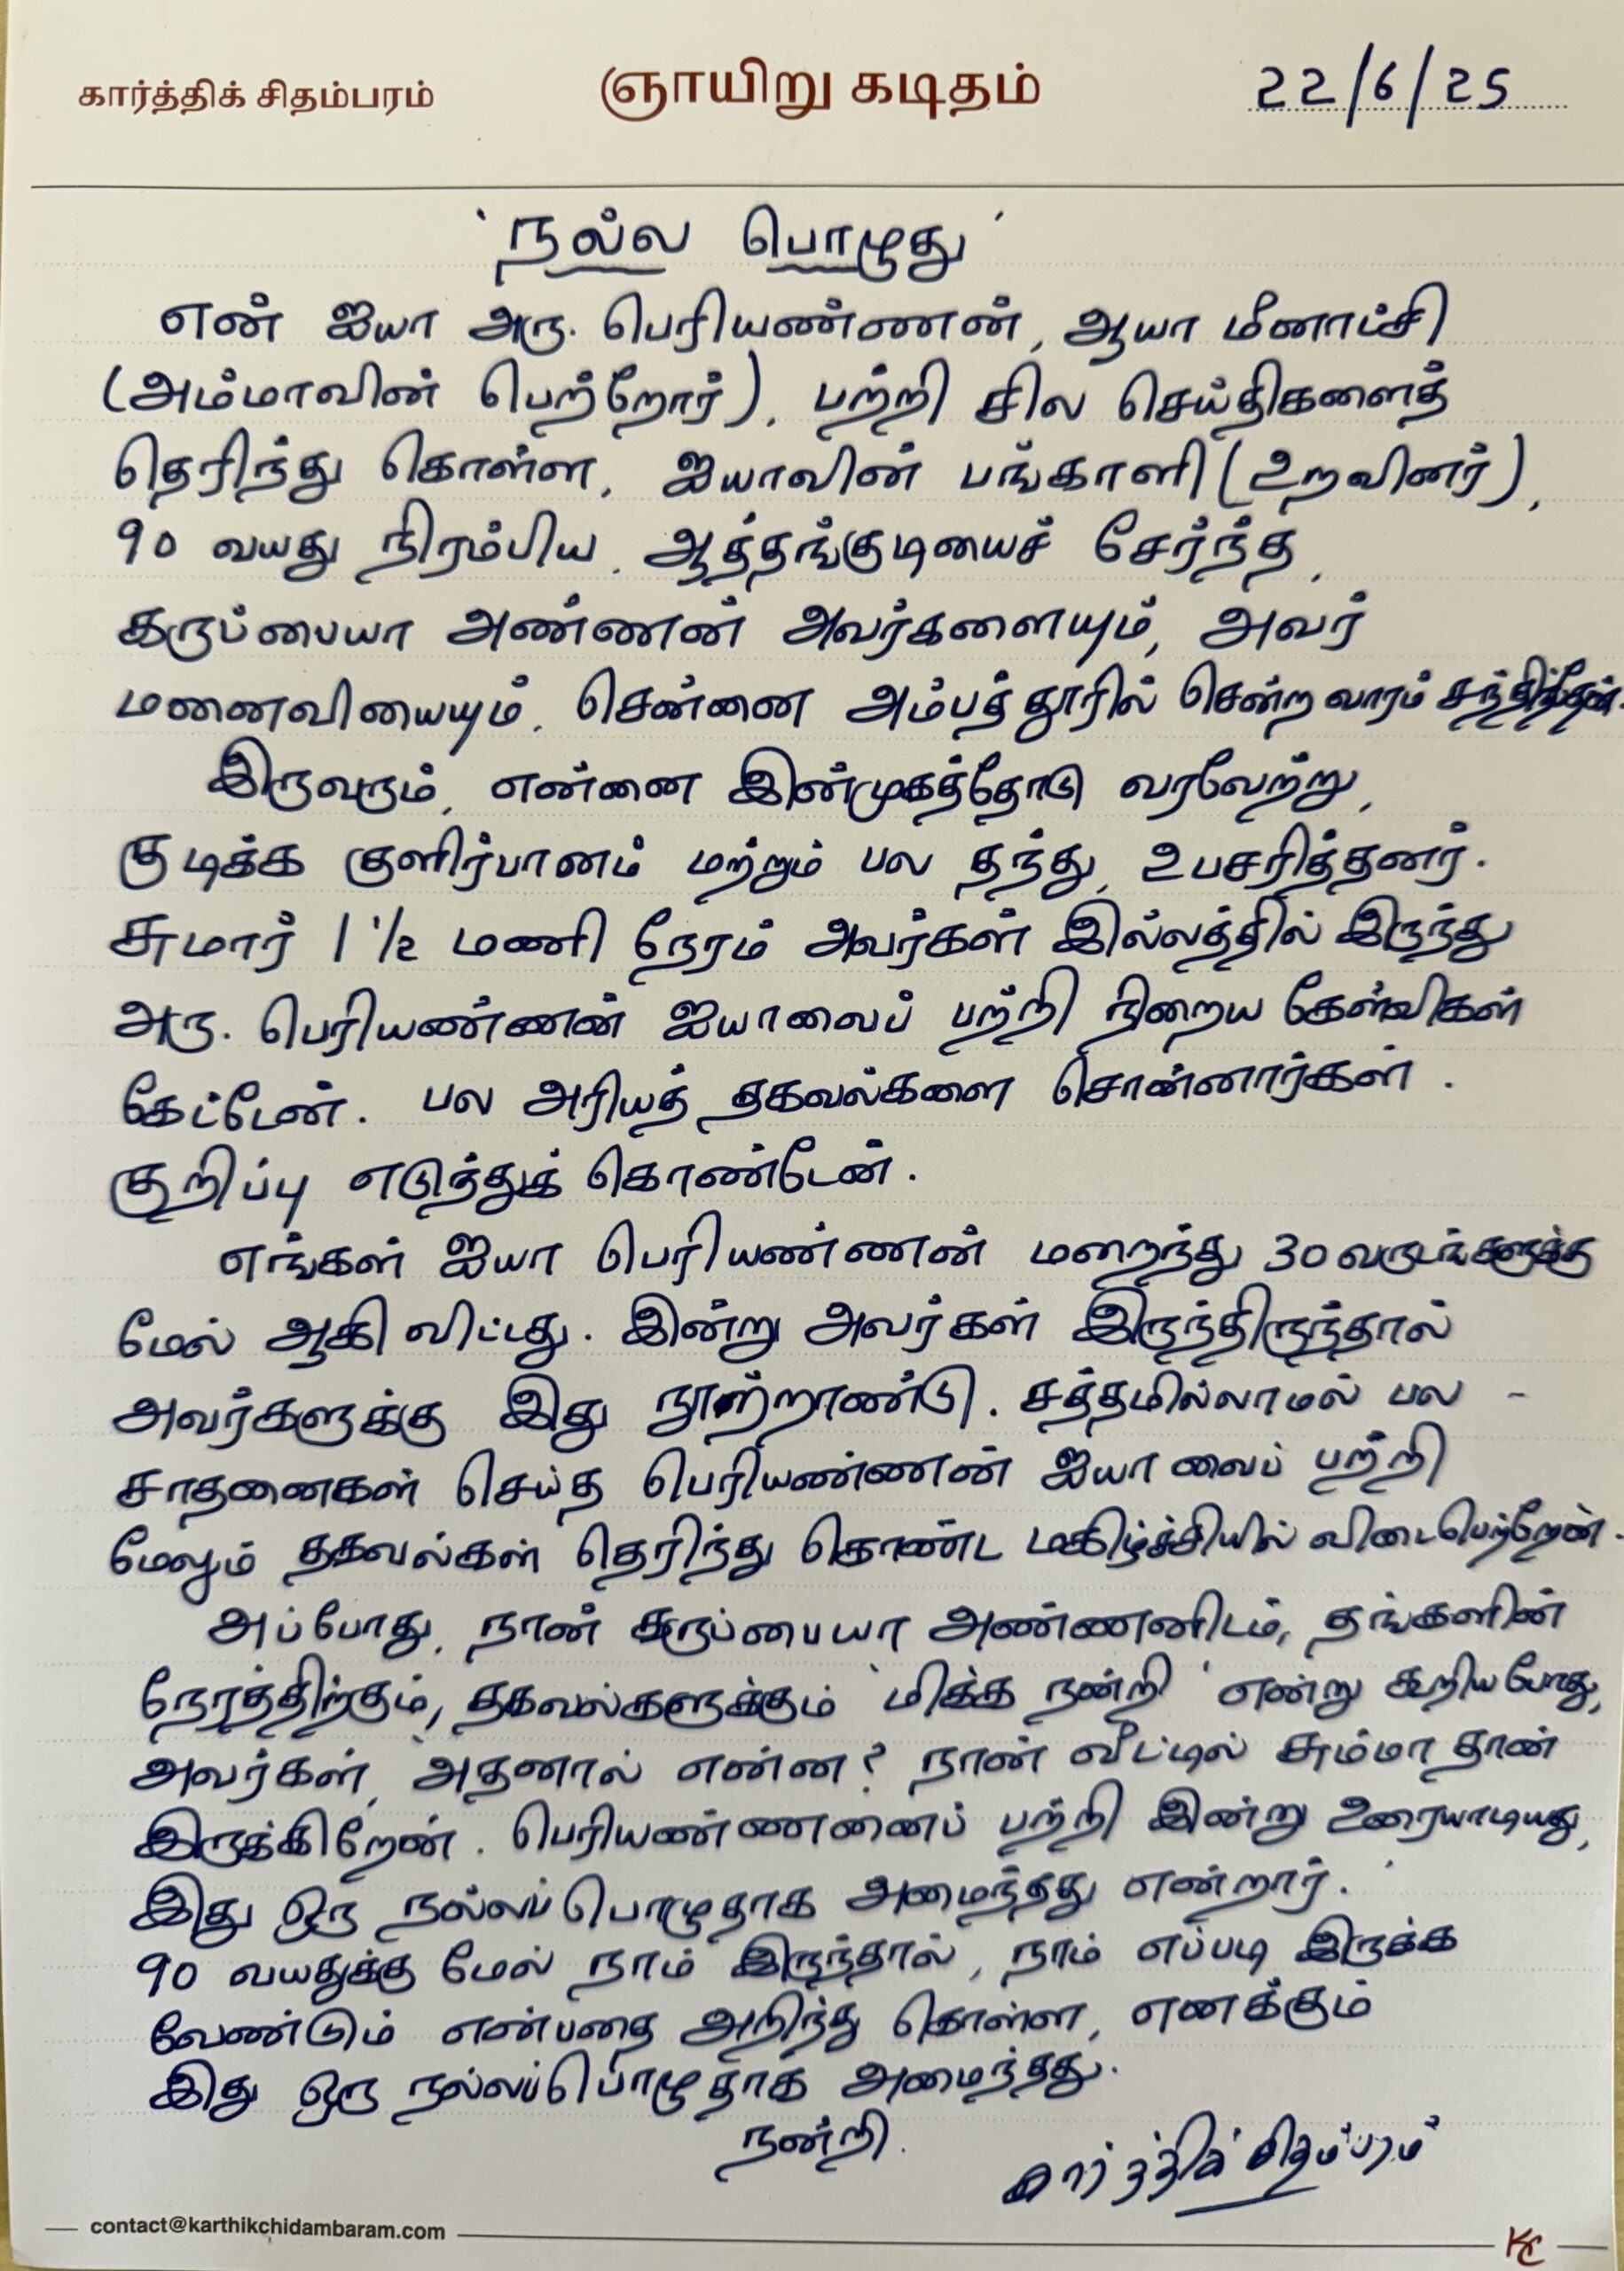 கார்த்திக் சிதம்பரம் ஞாயிறு கடிதம் 22/6/25
'நல்ல பொழுது'
என் ஐயா அரு. பெரியண்ணன், ஆயா மீனாட்சி
(அம்மாவின் பெற்றோர்), பற்றி சில செய்திகளைத்
தெரிந்து கொள்ள, ஐயாவின் பங்காளி (உறவினர்),
90 வயது நிரம்பிய, ஆத்தங்குடியைச் சேர்ந்த,
கருப்பையா அண்ணன் அவர்களையும், அவர்
மனைவியையும், சென்னை அம்பத்தூரில் சென்ற வாரம் சந்தித்தேன்.
இருவரும், என்னை இன்முகத்தோடு வரவேற்று,
குடிக்க குளிர்பானம் மற்றும் பல தந்து, உபசரித்தனர்.
சுமார் 1 1/2 மணி நேரம் அவர்கள் இல்லத்தில் இருந்து
அரு. பெரியண்ணன் ஐயாவைப் பற்றி நிறைய கேள்விகள்
கேட்டேன். பல அரியத் தகவல்களை சொன்னார்கள்.
குறிப்பு எடுத்துக் கொண்டேன்.
எங்கள் ஐயா பெரியண்ணன் மறைந்து 30 வருடங்களுக்கு
மேல் ஆகி விட்டது. இன்று அவர்கள் இருந்திருந்தால்
அவர்களுக்கு இது நூற்றாண்டு. சத்தமில்லாமல் பல -
சாதனைகள் செய்த பெரியண்ணன் ஐயாவைப் பற்றி
மேலும் தகவல்கள் தெரிந்து கொண்ட மகிழ்ச்சியில் விடைபெற்றேன்.
அப்போது, நான் கருப்பையா அண்ணனிடம், தங்களின்
நேரத்திற்கும், தகவல்களுக்கும் 'மிக்க நன்றி' என்று கூறிய போது,
அவர்கள், 'அதனால் என்ன? நான் வீட்டில் சும்மா தான்
இருக்கிறேன். பெரியண்ணனைப் பற்றி இன்று உரையாடியது,
இது ஒரு நல்லப் பொழுதாக அமைந்தது என்றார்.'
90 வயதுக்கு மேல் நாம் இருந்தால், நாம் எப்படி இருக்க
வேண்டும் என்பதை அறிந்து கொள்ள, எனக்கும்
இது ஒரு நல்லப்பொழுதாக அமைந்தது.
நன்றி.
கார்த்திக் சிதம்பரம்
contact@karthikchidambaram.com
KC